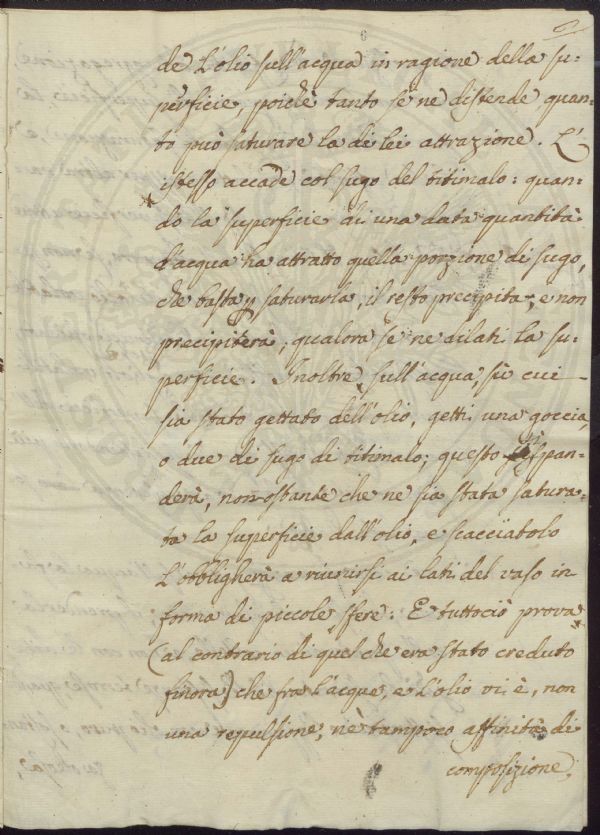 de L'olio sull'acqua in ragione della su-
perficie, poichè tanto se ne distende quan-
to può saturare la di lei attrazione. L'
istesso accade col sugo del titimalo: quan-
do la superficie di una data quantità
d'acqua ha attratto quella porzione di sugo,
che basta p saturarla, il resto precipita, e non
precipiterà, qualora se ne dilati la su-
perficie. Inoltre sull'acqua, sù cui
sia stato gettato dell'olio, getti una goccia,
o due di sugo di titimalo; questo si span-
derà, non ostante che ne sia stata satura-
ta la superficie dall'olio, e scacciatolo
L'obbligherà a riunirsi ai lati del vaso in
forma di piccole sfere. E tuttociò prova
(al contrario di quel che era stato creduto
finora) che fra l'acque, e L'olio vi è, non
una repulsione, nè tampoco affinità di
composizione,